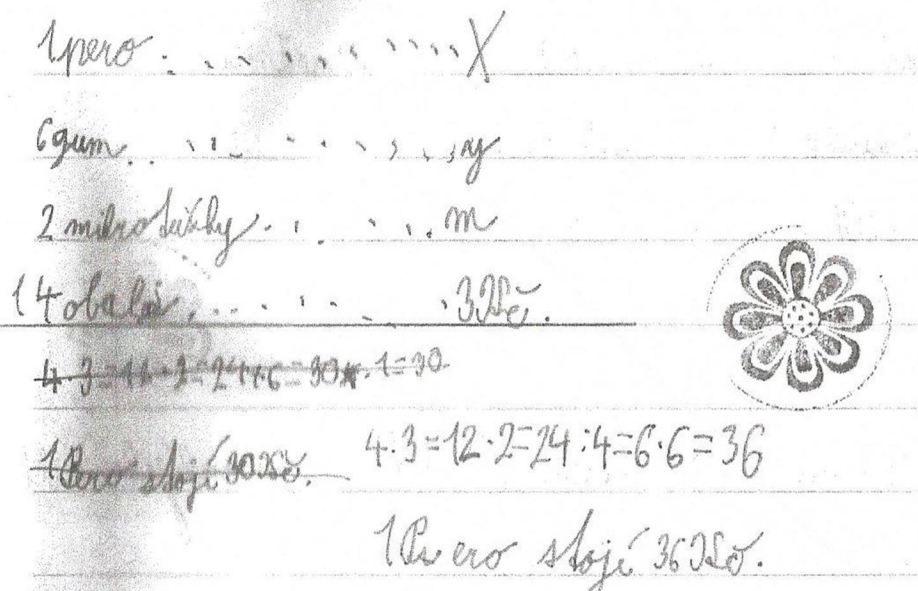 1 pero . . . . . . . . . . X
6 gum . . . . . . . . . y
2 mikrotužky . . . . . m
1 4 obalů . . . . . . . 3 Kč.
4 · 3 = 12 · 2 = 24 + 6 = 30 · 1 = 30
1 Pero stojí 30 Kč.
4 · 3 = 12 · 2 = 24 : 4 = 6 · 6 = 36
1 Pero stojí 36 Kč.